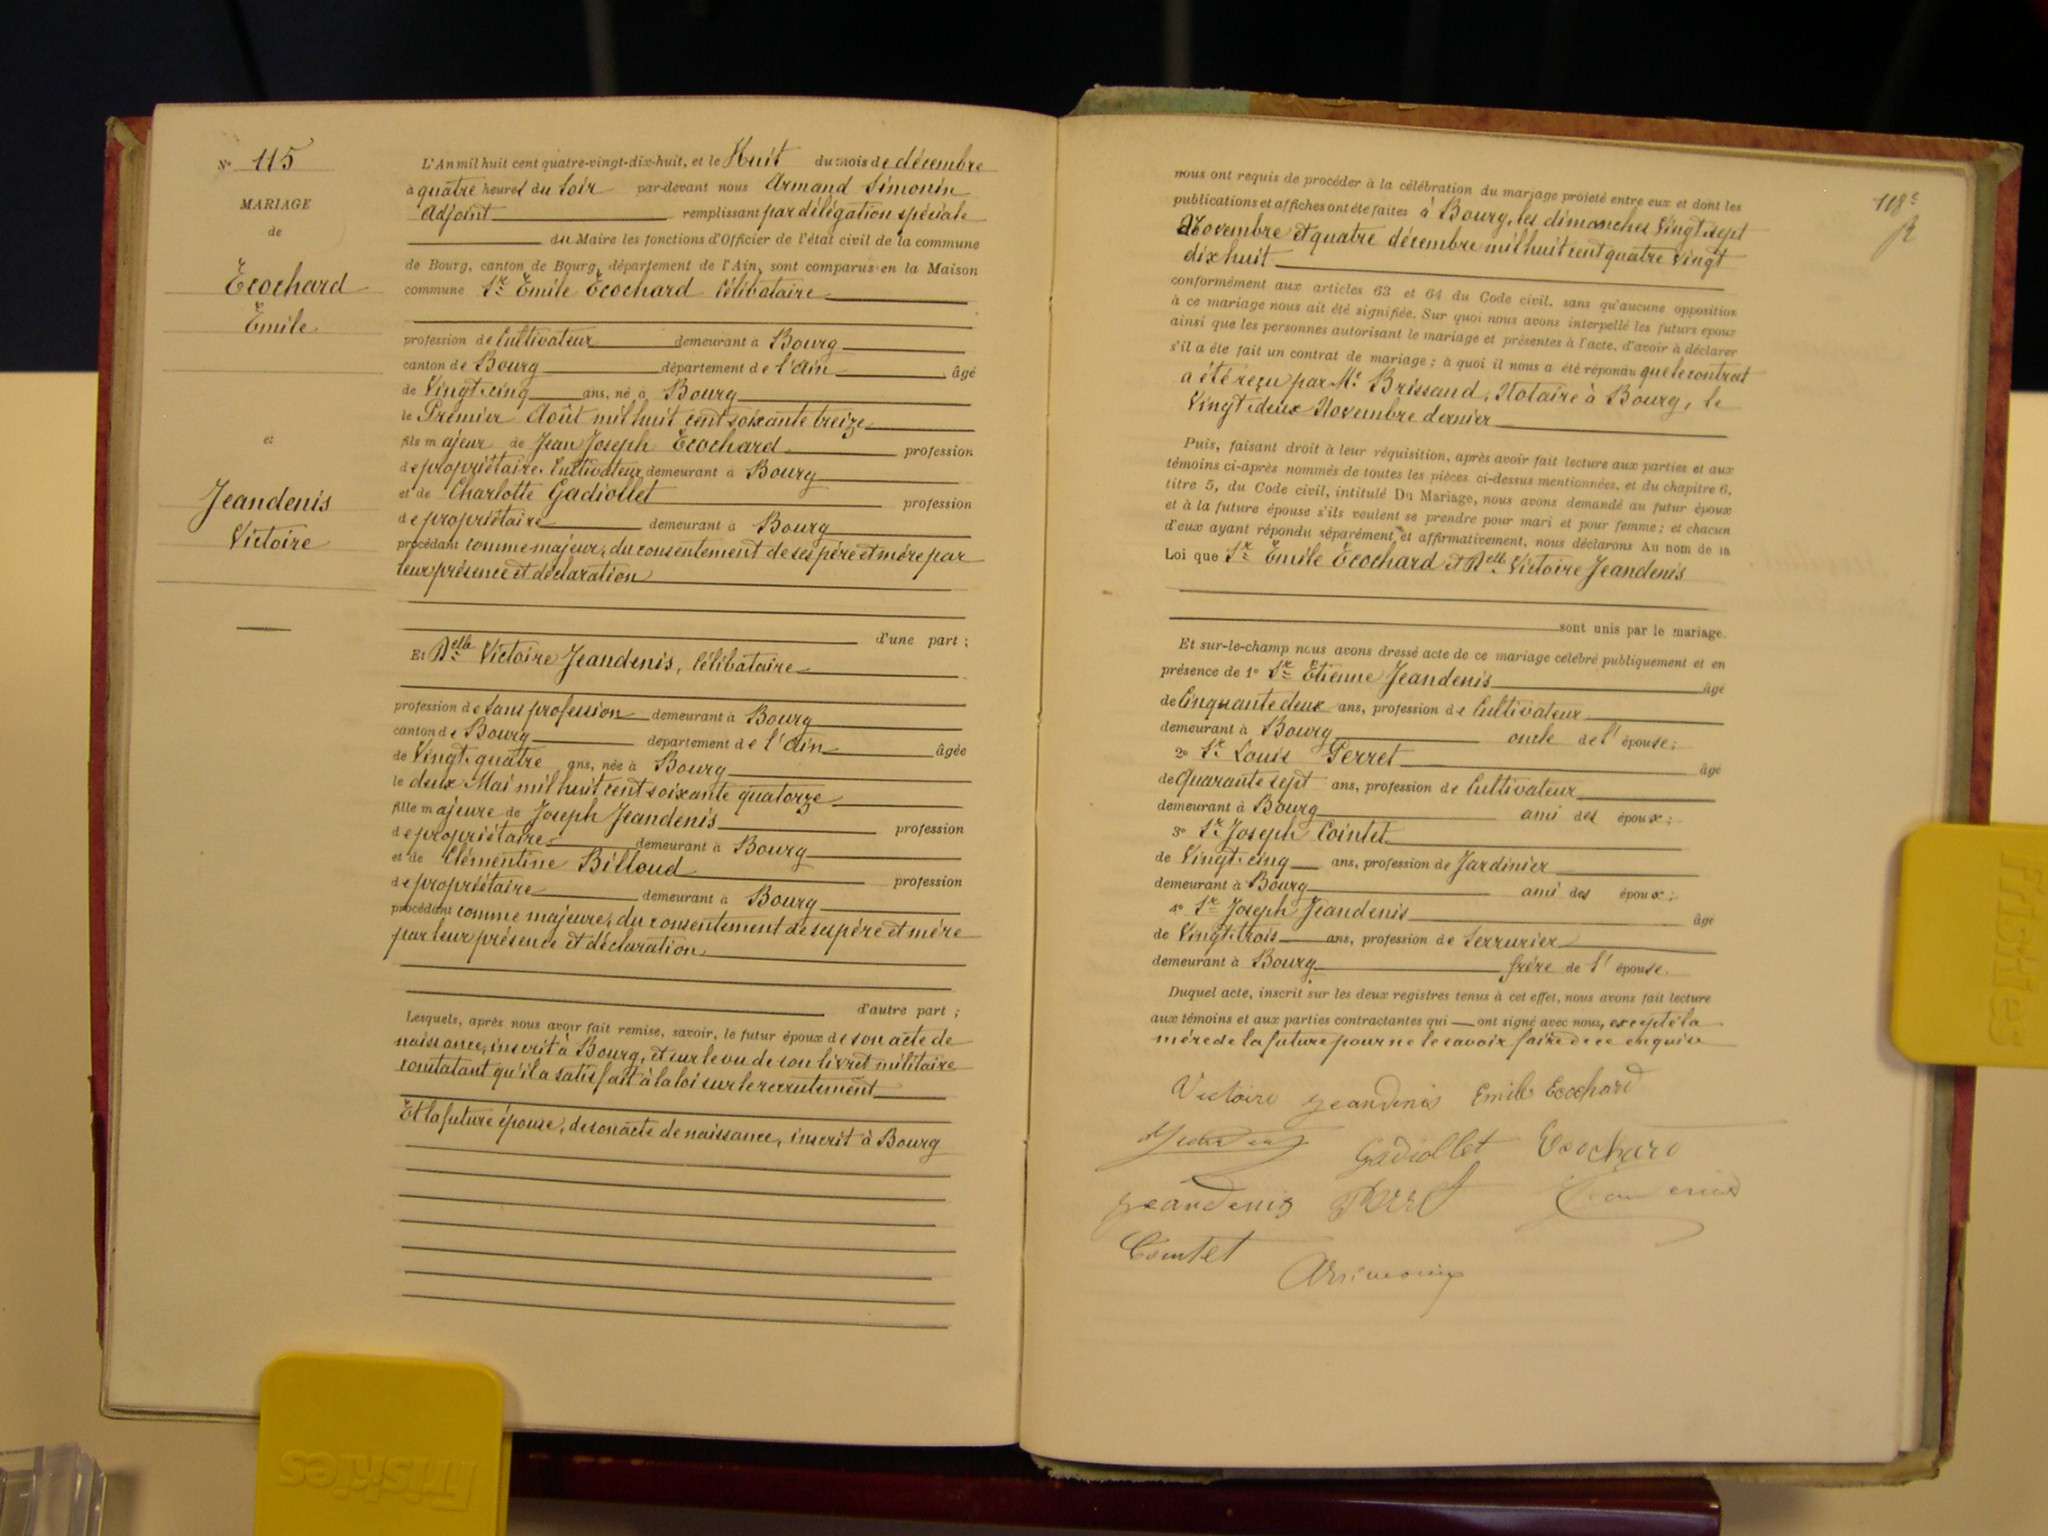 No 115
MARIAGE
de
Ecochard
Emile
et
Jeandenis
Victoire
L'An mil huit cent quatre-vingt-dix-huit, et le Huit du mois de décembre
à quatre heures du soir par-devant nous Armand Simonin
Adjoint remplissant par délégation spéciale
du Maire les fonctions d'Officier de l'état civil de la commune
de Bourg, canton de Bourg, département de l'Ain, sont comparus en la Maison
commune Sr Emile Ecochard célibataire
profession de Cultivateur demeurant à Bourg
canton de Bourg département de l'Ain âgé
de Vingt cinq ans, né à Bourg
le Premier Août mil huit cent soixante treize
fils majeur de Jean Joseph Ecochard profession
de propriétaire Cultivateur demeurant à Bourg
et de Charlotte Gadiollet profession
de propriétaire demeurant à Bourg
procédant comme majeur, du consentement de ses père et mère par
leur présence et déclaration
d'une part ;
Et Delle Victoire Jeandenis, célibataire
profession de sans profession demeurant à Bourg
canton de Bourg département de l'Ain âgée
de Vingt quatre ans, née à Bourg
le deux Mai mil huit cent soixante quatorze
fille majeure de Joseph Jeandenis profession
de propriétaire demeurant à Bourg
et de Clémentine Billoud profession
de propriétaire demeurant à Bourg
procédant comme majeure, du consentement de ses père et mère
par leur présence et déclaration
d'autre part ;
Lesquels, après nous avoir fait remise, savoir, le futur époux de son acte de
naissance, inscrit à Bourg, et sur le vu de son livret militaire
constatant qu'il a satisfait à la loi sur le recrutement
Et la future épouse, de son acte de naissance, inscrit à Bourg
118e
nous ont requis de procéder à la célébration du mariage projeté entre eux et dont les
publications et affiches ont été faites à Bourg, les dimanches Vingt sept
Novembre et quatre décembre mil huit cent quatre vingt
dix huit
conformément aux articles 63 et 64 du Code civil, sans qu'aucune opposition
à ce mariage nous ait été signifiée. Sur quoi nous avons interpellé les futurs époux
ainsi que les personnes autorisant le mariage et présentes à l'acte, d'avoir à déclarer
s'il a été fait un contrat de mariage ; à quoi il nous a été répondu que le contrat
a été reçu par Me Brissaud, Notaire à Bourg, le
Vingt deux Novembre dernier
Puis, faisant droit à leur réquisition, après avoir fait lecture aux parties et aux
témoins ci-après nommés de toutes les pièces ci-dessus mentionnées, et du chapitre 6,
titre 5, du Code civil, intitulé Du Mariage, nous avons demandé au futur époux
et à la future épouse s'ils veulent se prendre pour mari et pour femme ; et chacun
d'eux ayant répondu séparément et affirmativement, nous déclarons Au nom de la
Loi que Sr Emile Ecochard et Delle Victoire Jeandenis
sont unis par le mariage.
Et sur-le-champ nous avons dressé acte de ce mariage célébré publiquement et en
présence de 1o Sr Etienne Jeandenis âgé
de Cinquante deux ans, profession de Cultivateur
demeurant à Bourg oncle de l'épouse ;
2o Sr Louis Perret âgé
de Quarante sept ans, profession de Cultivateur
demeurant à Bourg ami des époux ;
3o Sr Joseph Cointet
de Vingt cinq ans, profession de Jardinier
demeurant à Bourg ami des époux ;
4o Sr Joseph Jeandenis âgé
de Vingt trois ans, profession de Serrurier
demeurant à Bourg frère de l'épouse.
Duquel acte, inscrit sur les deux registres tenus à cet effet, nous avons fait lecture
aux témoins et aux parties contractantes qui ont signé avec nous, excepté la
mère de la future pour ne le savoir faire de ce enquise
Victoire Jeandenis Emile Ecochard
Gadiollet Ecochard
Jeandenis Perret Jeandenis
Cointet
Friskies
Friskies